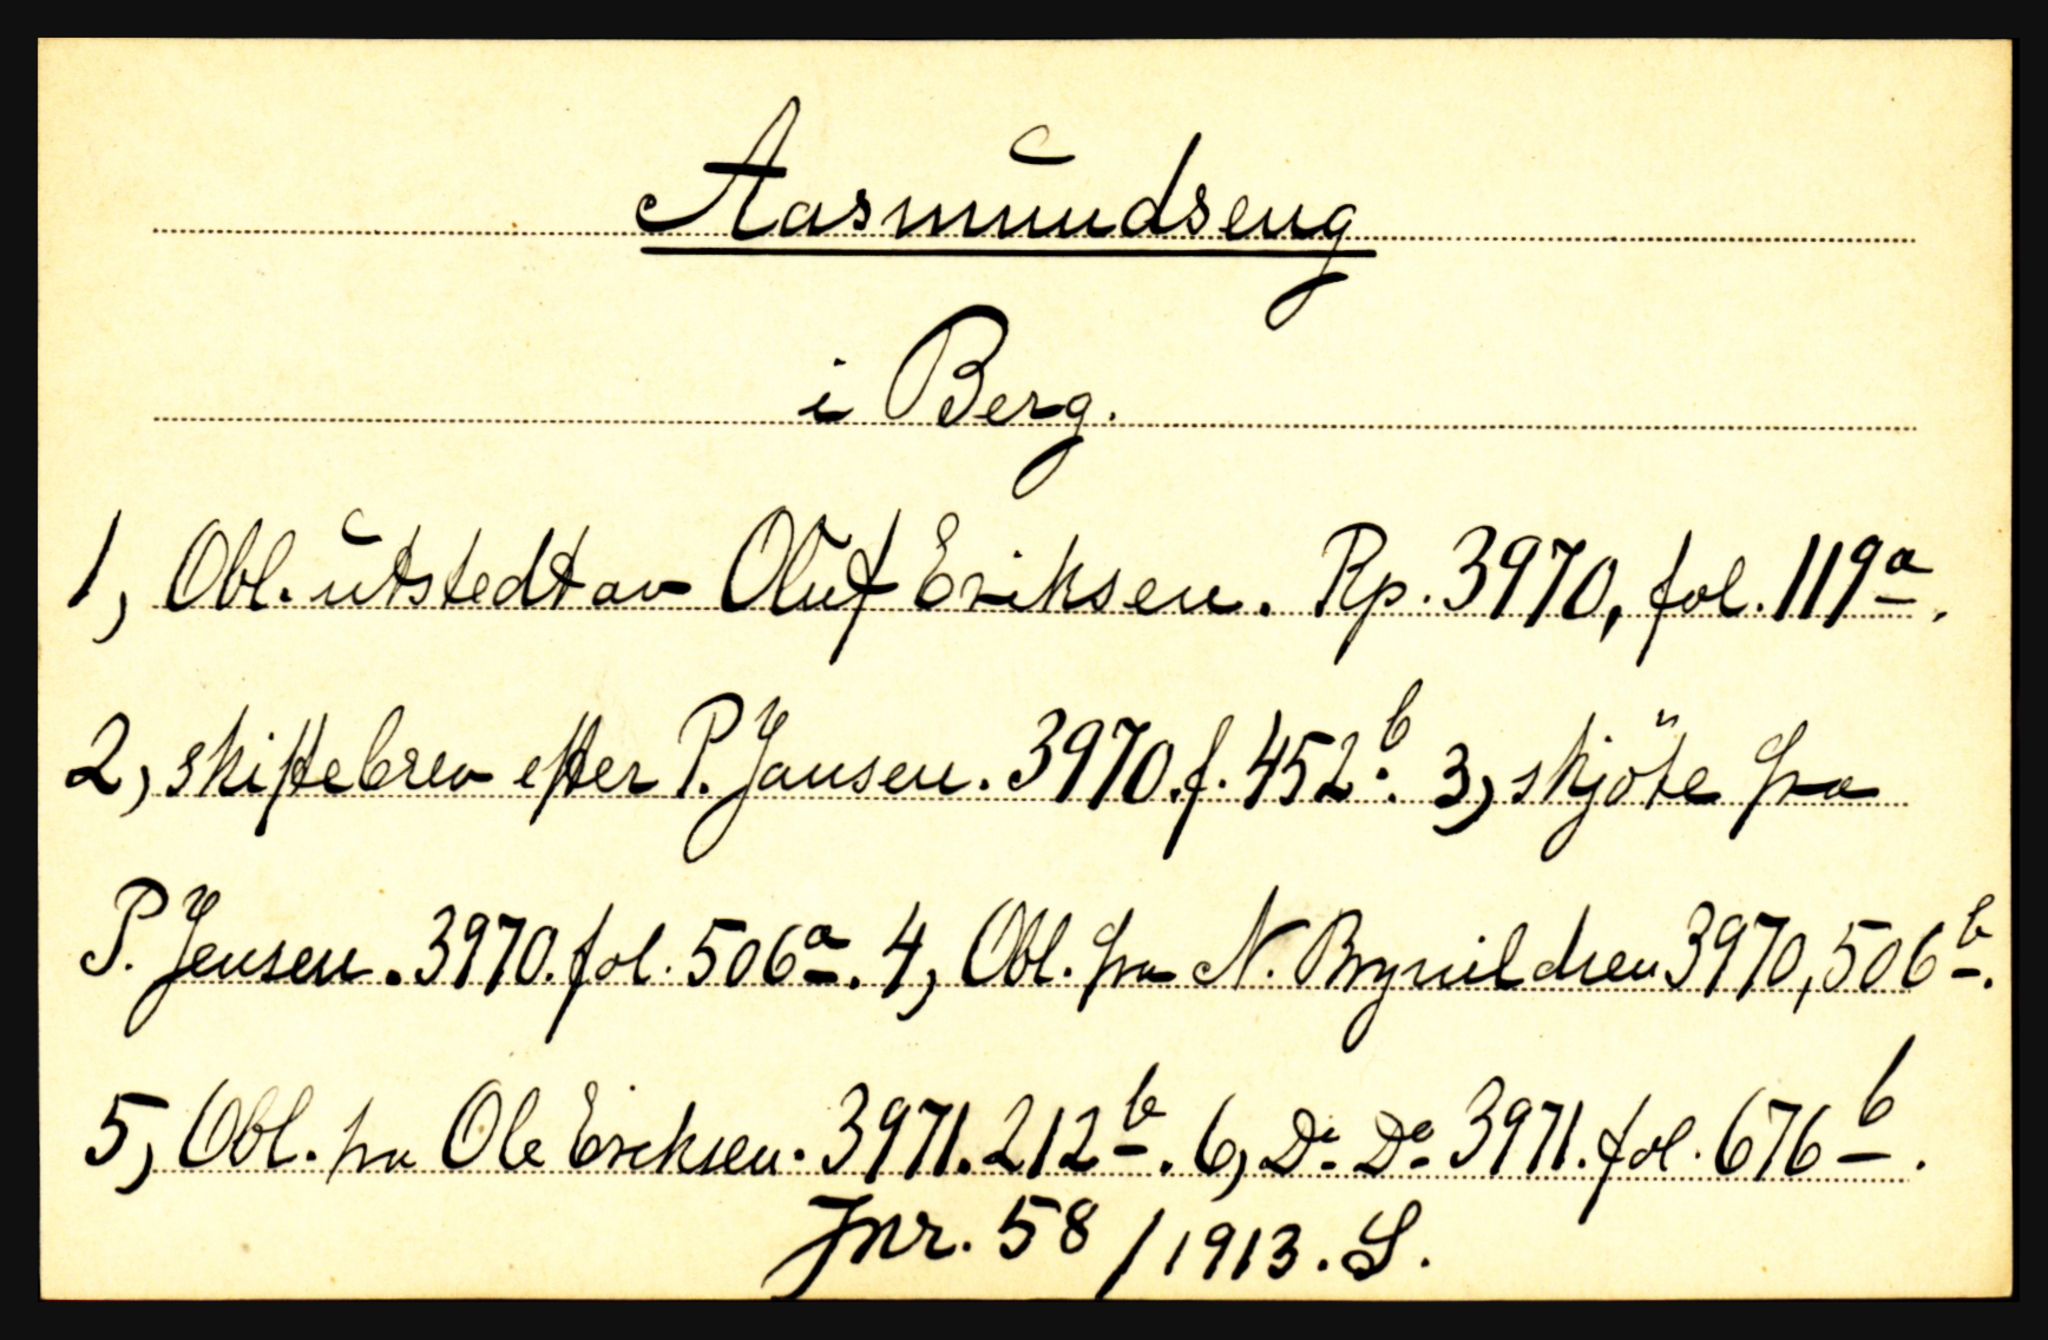 Aasmundseng
i Berg.
1, Obl. utstedt av Oluf Eriksen. Rp. 3970, fol. 119a.
2, skiftebrev efter P. Jansen. 3970. f. 452b. 3, skjöte fra
P. Jensen. 3970. fol. 506a. 4, Obl. fra N. Brynildsen 3970, 506b.
5, Obl. fra Ole Ericksen. 3971. 212b. 6, Do Do 3971. fol. 676b.
Jnr. 58/1913. S.